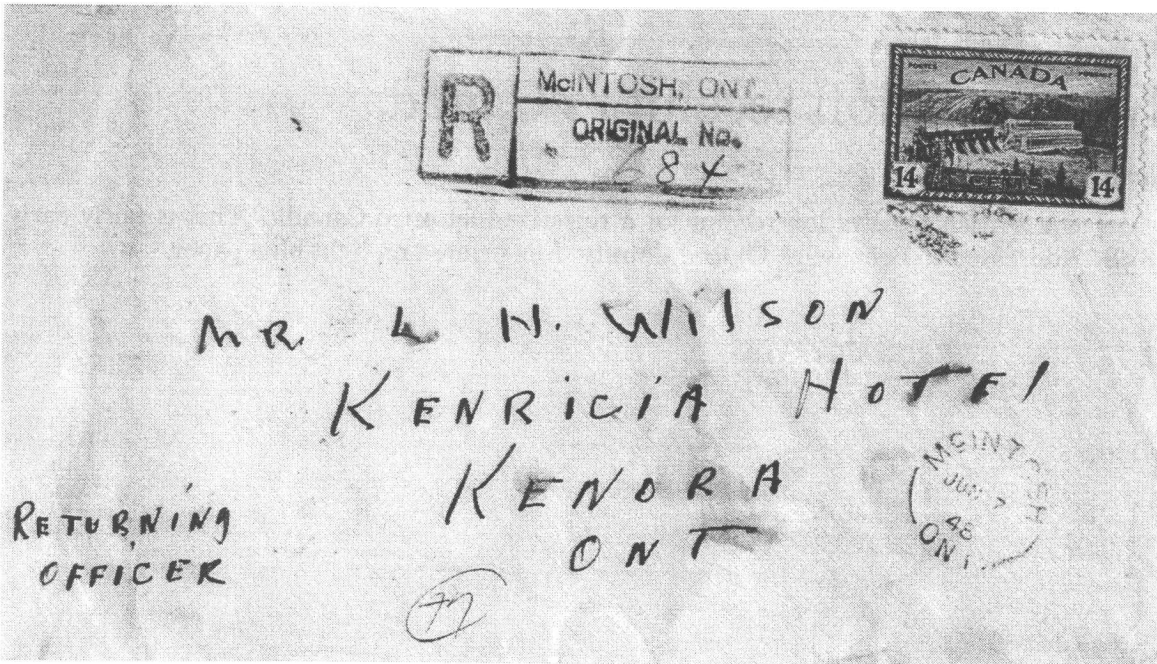 McINTOSH, ONT.
R
ORIGINAL No.
684
POSTES POSTAGE
CANADA
14 CENTS 14
MR. L H. WILSON
KENRICIA HOTEl
KENORA
ONT
RETURNING
OFFICER
MCINTOSH
JUN 7
48
ONT.
77